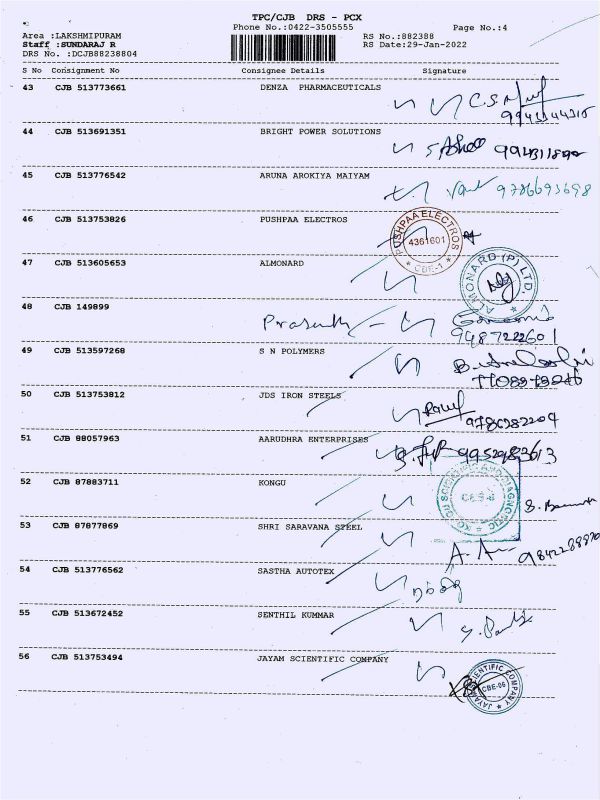 TPC/CJB DRS - PCX
Phone No.:0422-3505555 Page No.:4
Area :LAKSHMIPURAM RS No.:882388
Staff :SUNDARAJ R RS Date:29-Jan-2022
DRS No. :DCJB88238804
S No Consignment No Consignee Details Signature
43 CJB 513773661 DENZA PHARMACEUTICALS
44 CJB 513691351 BRIGHT POWER SOLUTIONS
45 CJB 513776542 ARUNA AROKIYA MAIYAM
9786693698
46 CJB 513753826 PUSHPAA ELECTROS
PUSHPAA ELECTROS
4361601
CBE-1
47 CJB 513605653 ALMONARD
ALMONARD (P) LTD.
48 CJB 149899
Prasanth
9487222601
49 CJB 513597268 S N POLYMERS
50 CJB 513753812 JDS IRON STEELS
9786282204
51 CJB 88057963 AARUDHRA ENTERPRISES
9952983613
52 CJB 87883711 KONGU
53 CJB 87877869 SHRI SARAVANA STEEL
54 CJB 513776562 SASTHA AUTOTEX
55 CJB 513672452 SENTHIL KUMMAR
56 CJB 513753494 JAYAM SCIENTIFIC COMPANY
JAYAM SCIENTIFIC COMPANY
CBE-06